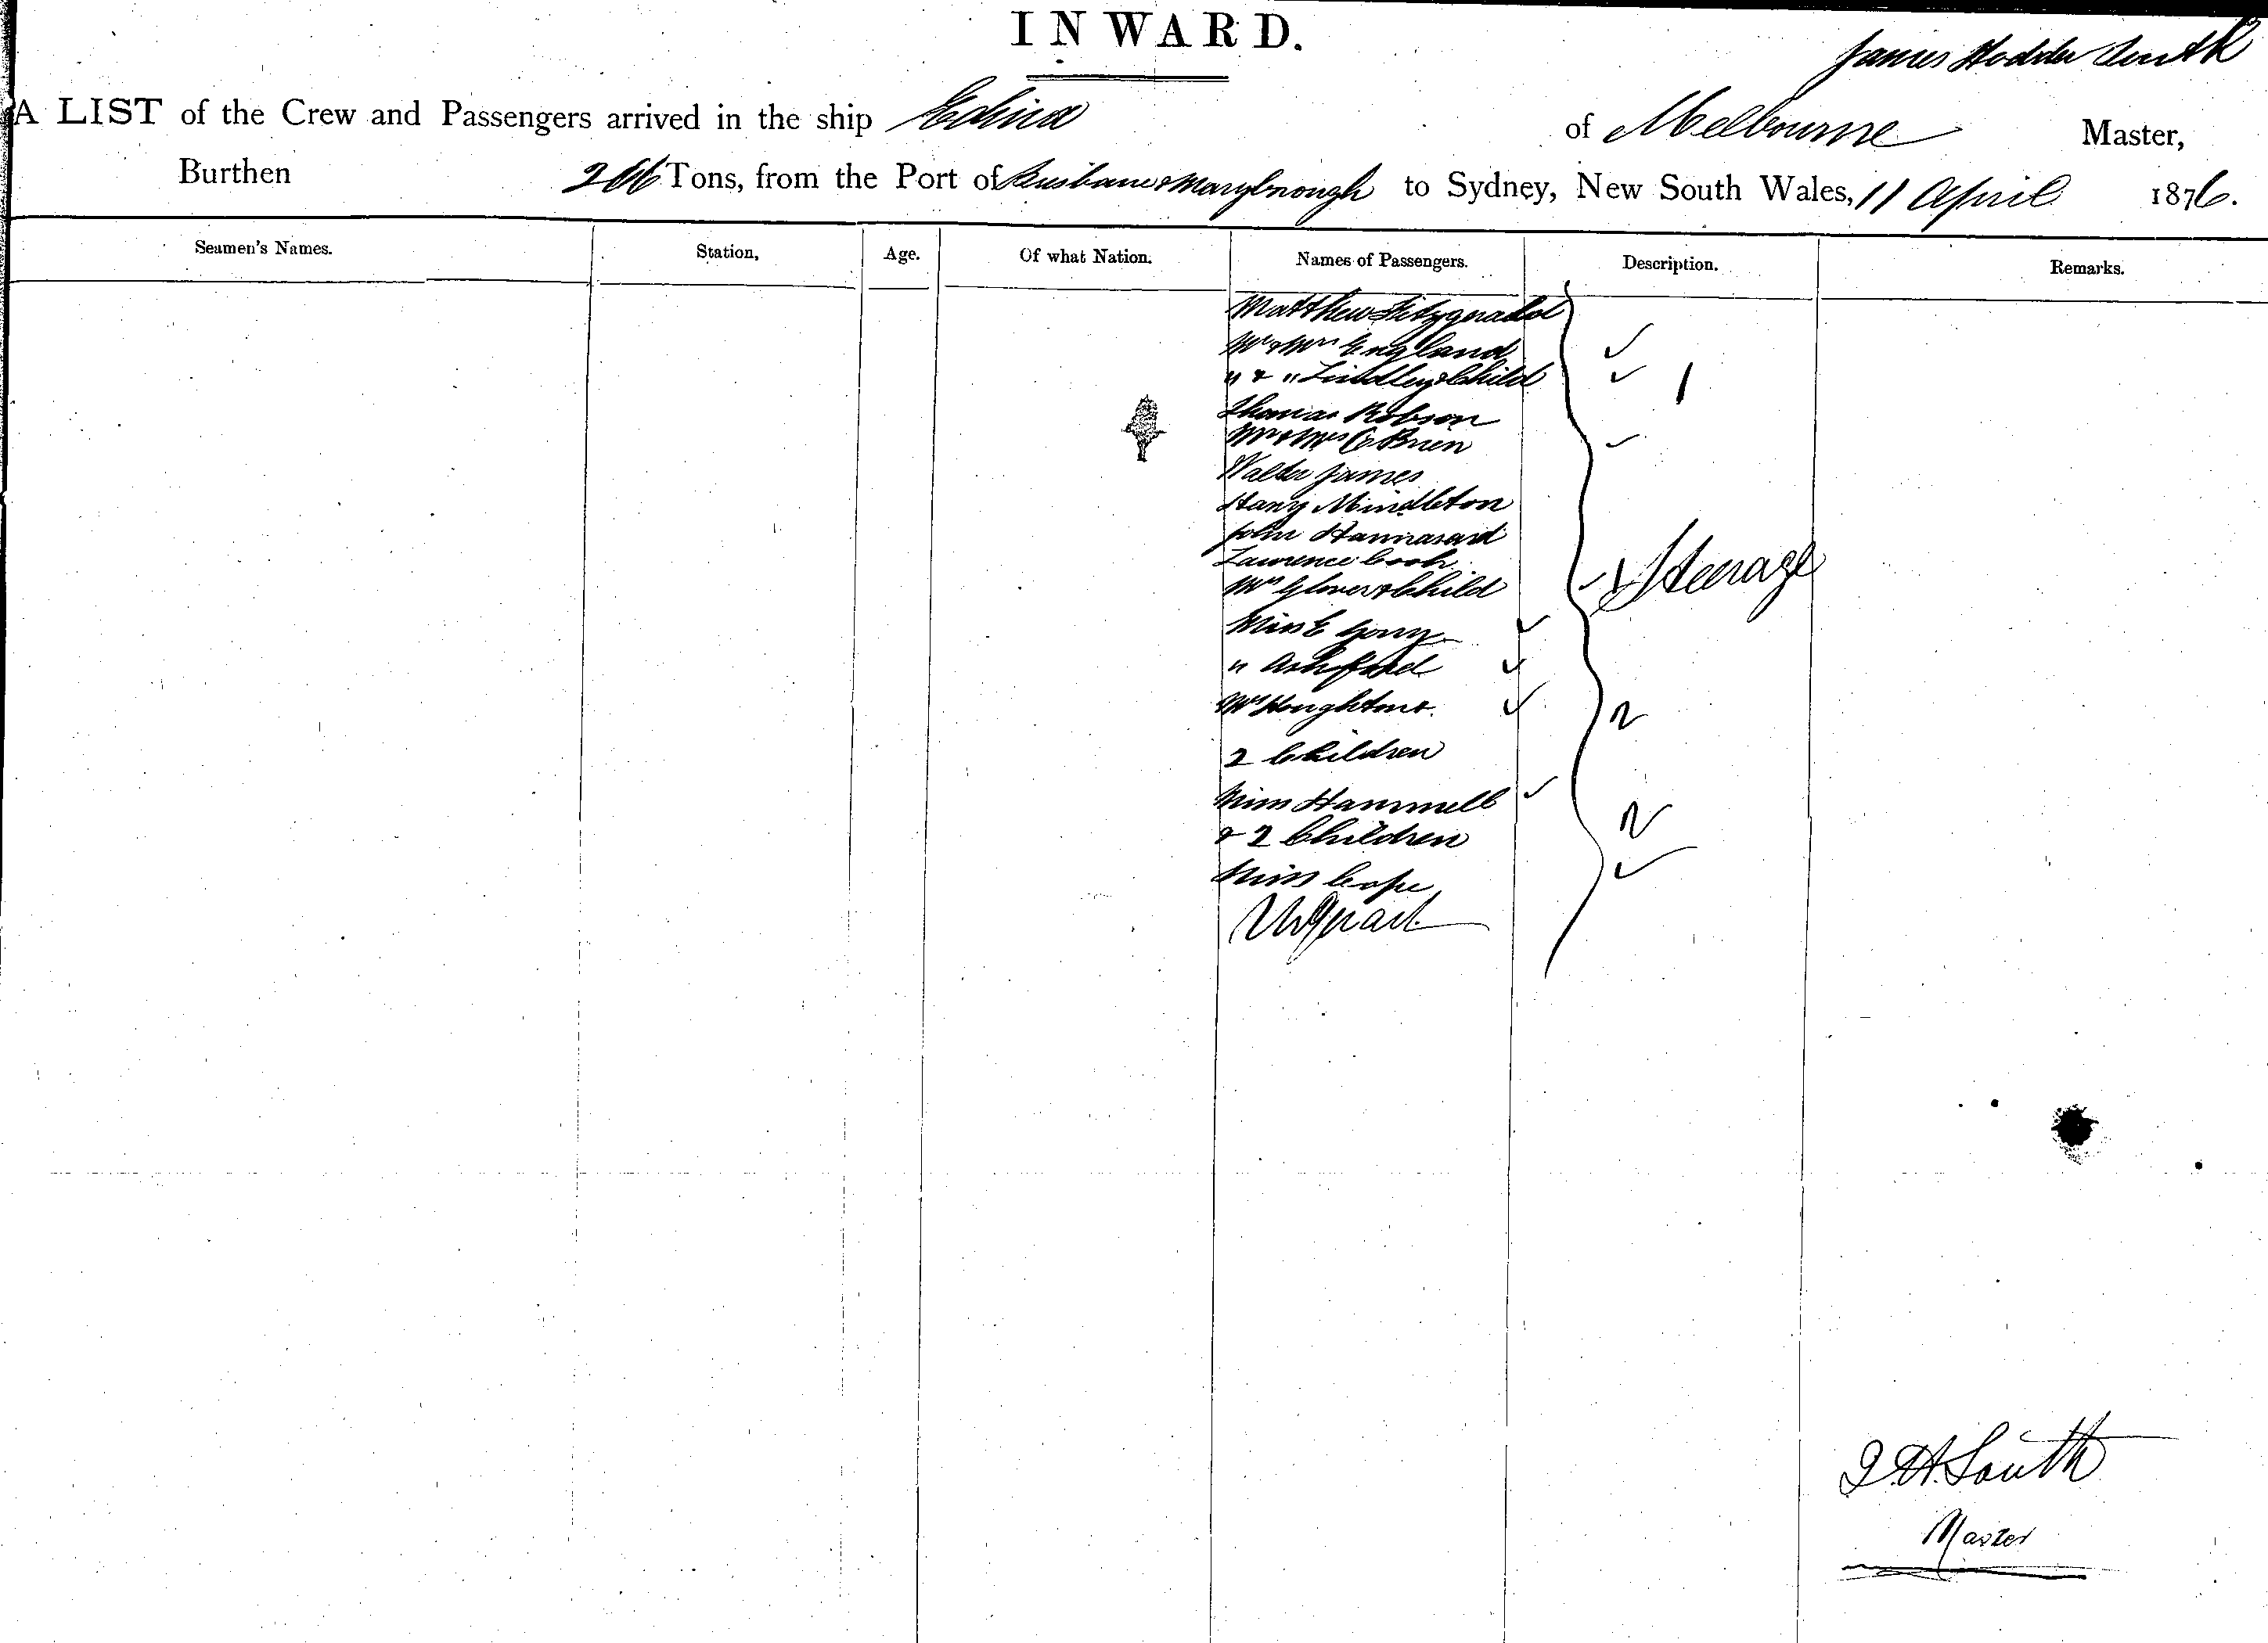 INWARD.
James Hodder South
A LIST of the Crew and Passengers arrived in the ship Edina of Melbourne Master,
Burthen 266 Tons, from the Port of Brisbane & Maryborough to Sydney, New South Wales, 11 April 1876.
Seamen's Names. Station, Age. Of what Nation. Names of Passengers. Description. Remarks.
Matthew Fitzgerald
Mr & Mrs England
" & " Lindley & Child 1
Thomas Robson
Mr & Mrs O Brien
Walter James
Harry Mindleton
John
Lawrence Cook
Mrs Glover & Child Steerage
Miss E
" Ashford
Mrs Houghton & 2
2 Children
Miss Hammell
& 2 Children 2
Miss Cope
Urquart
J.H. South
Master